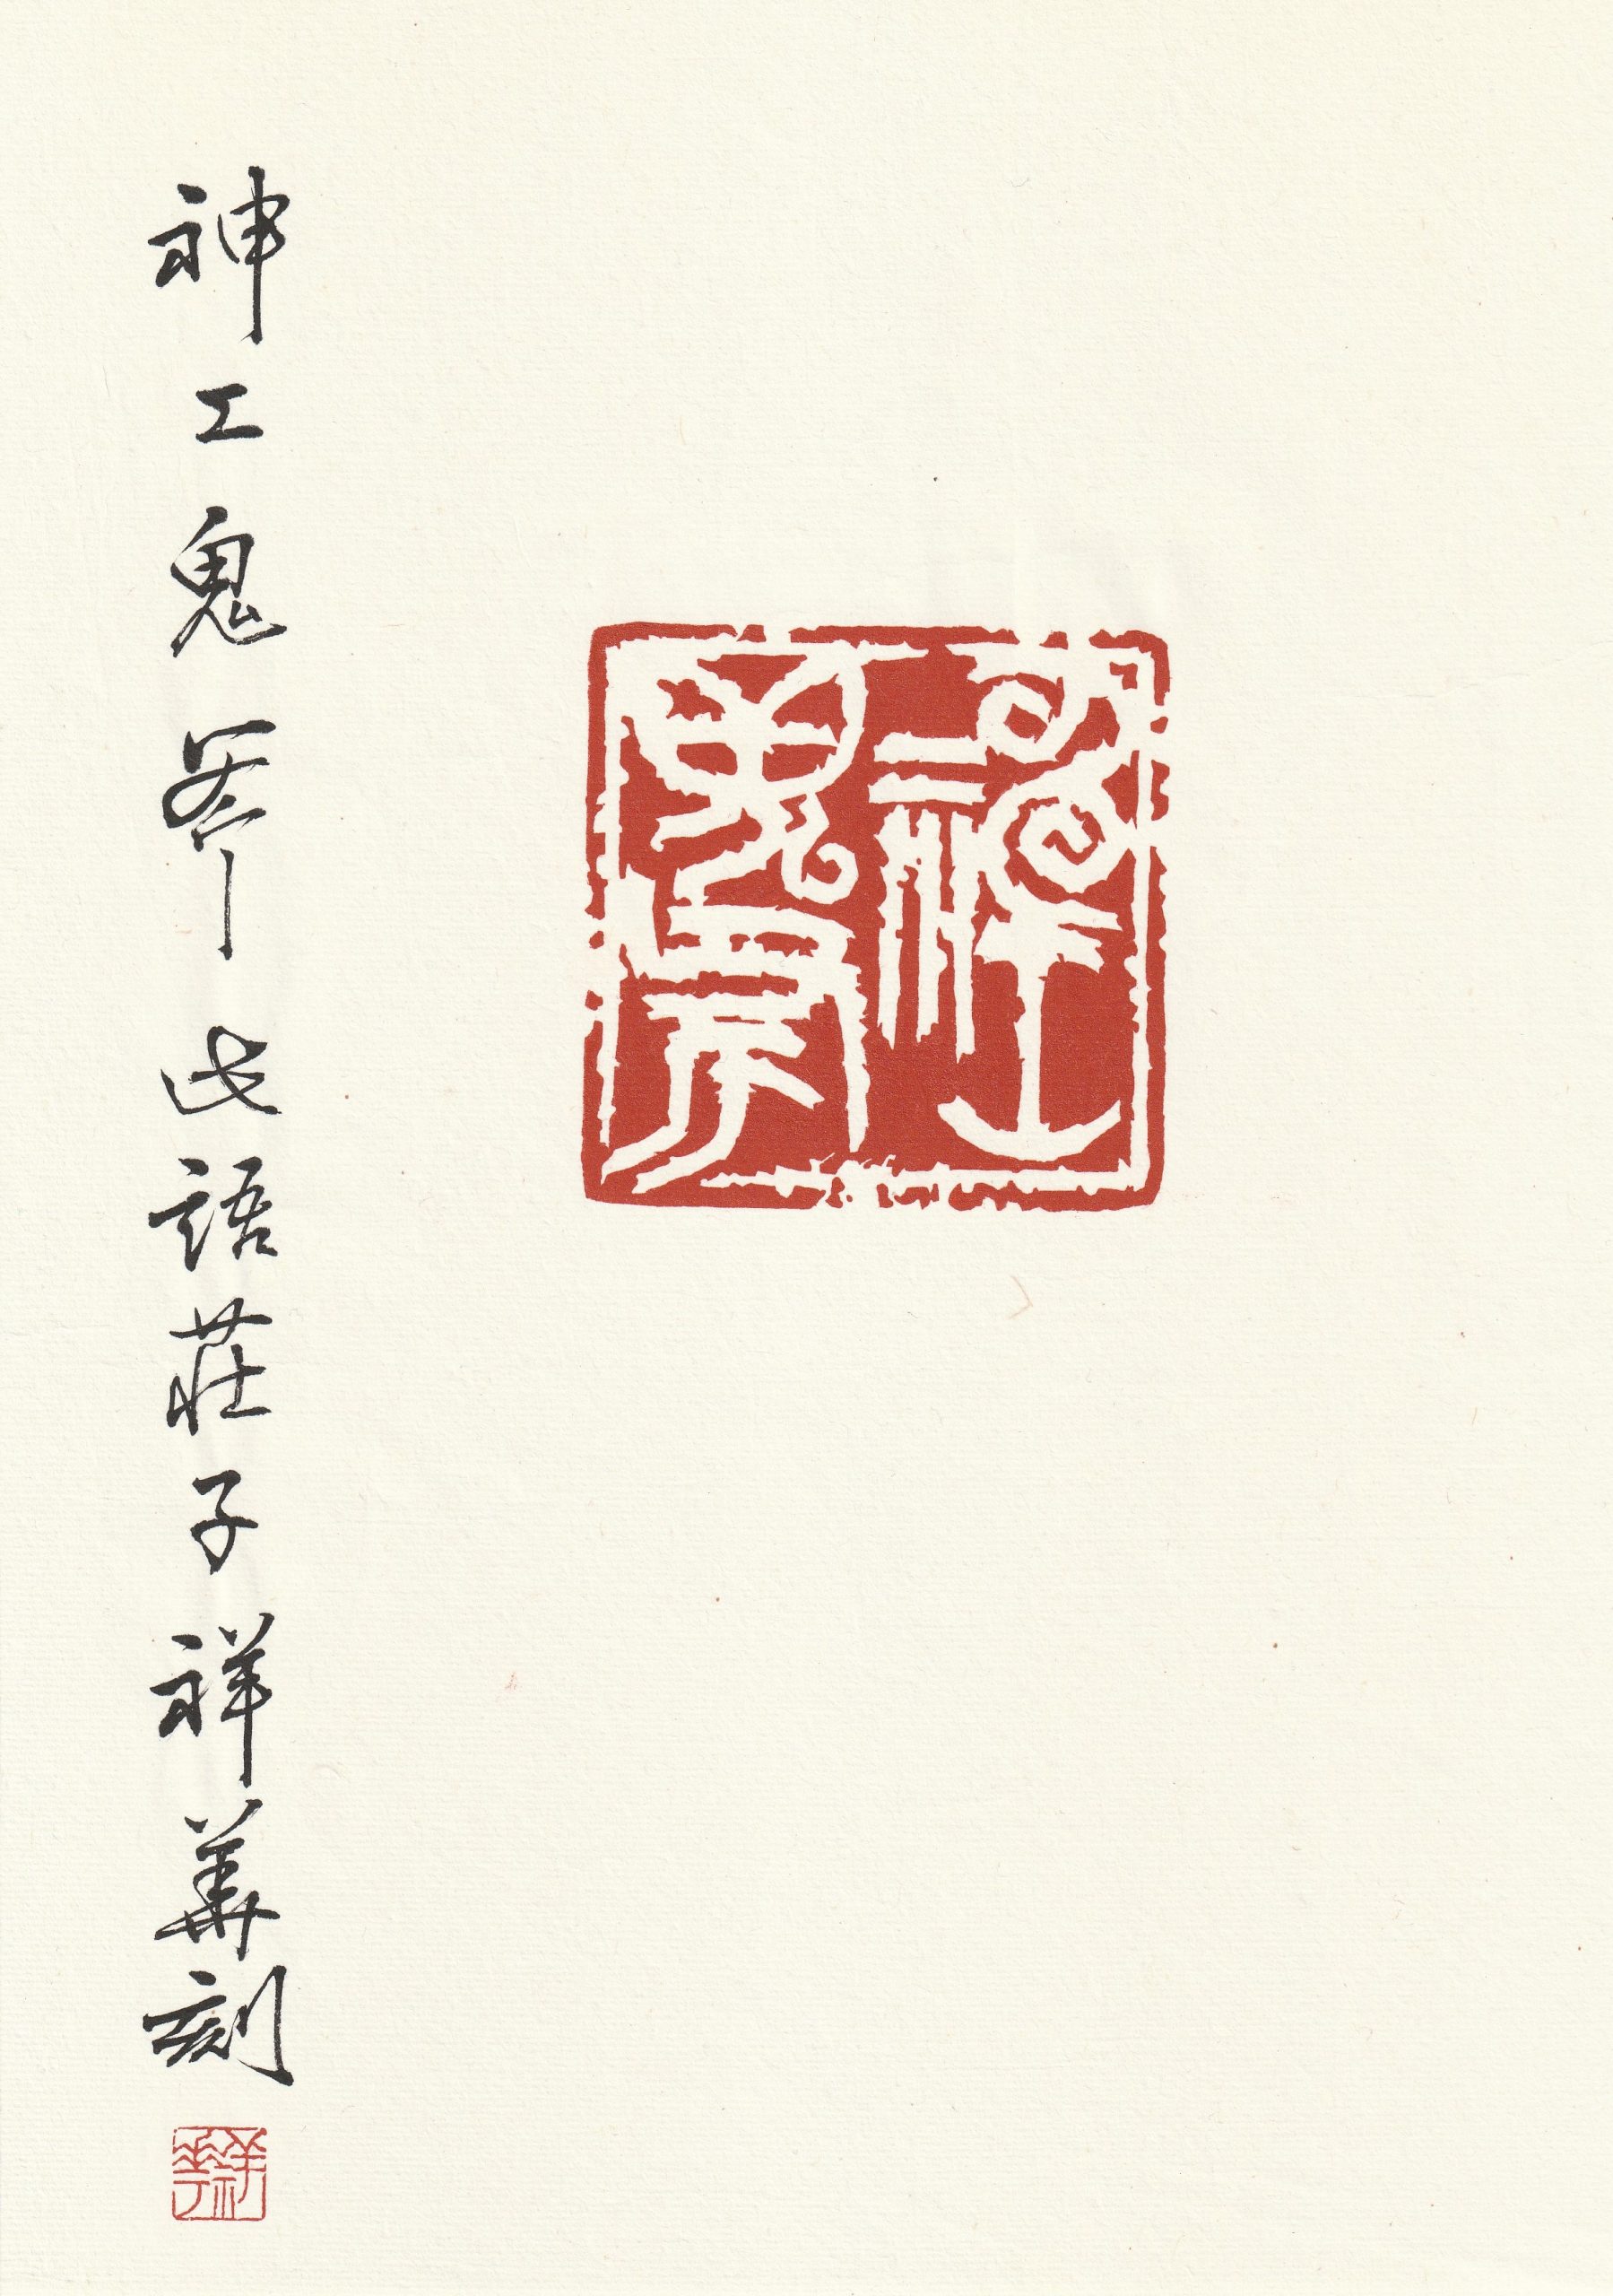 神工
鬼斧
神工鬼斧此語莊子祥華刻
祥華